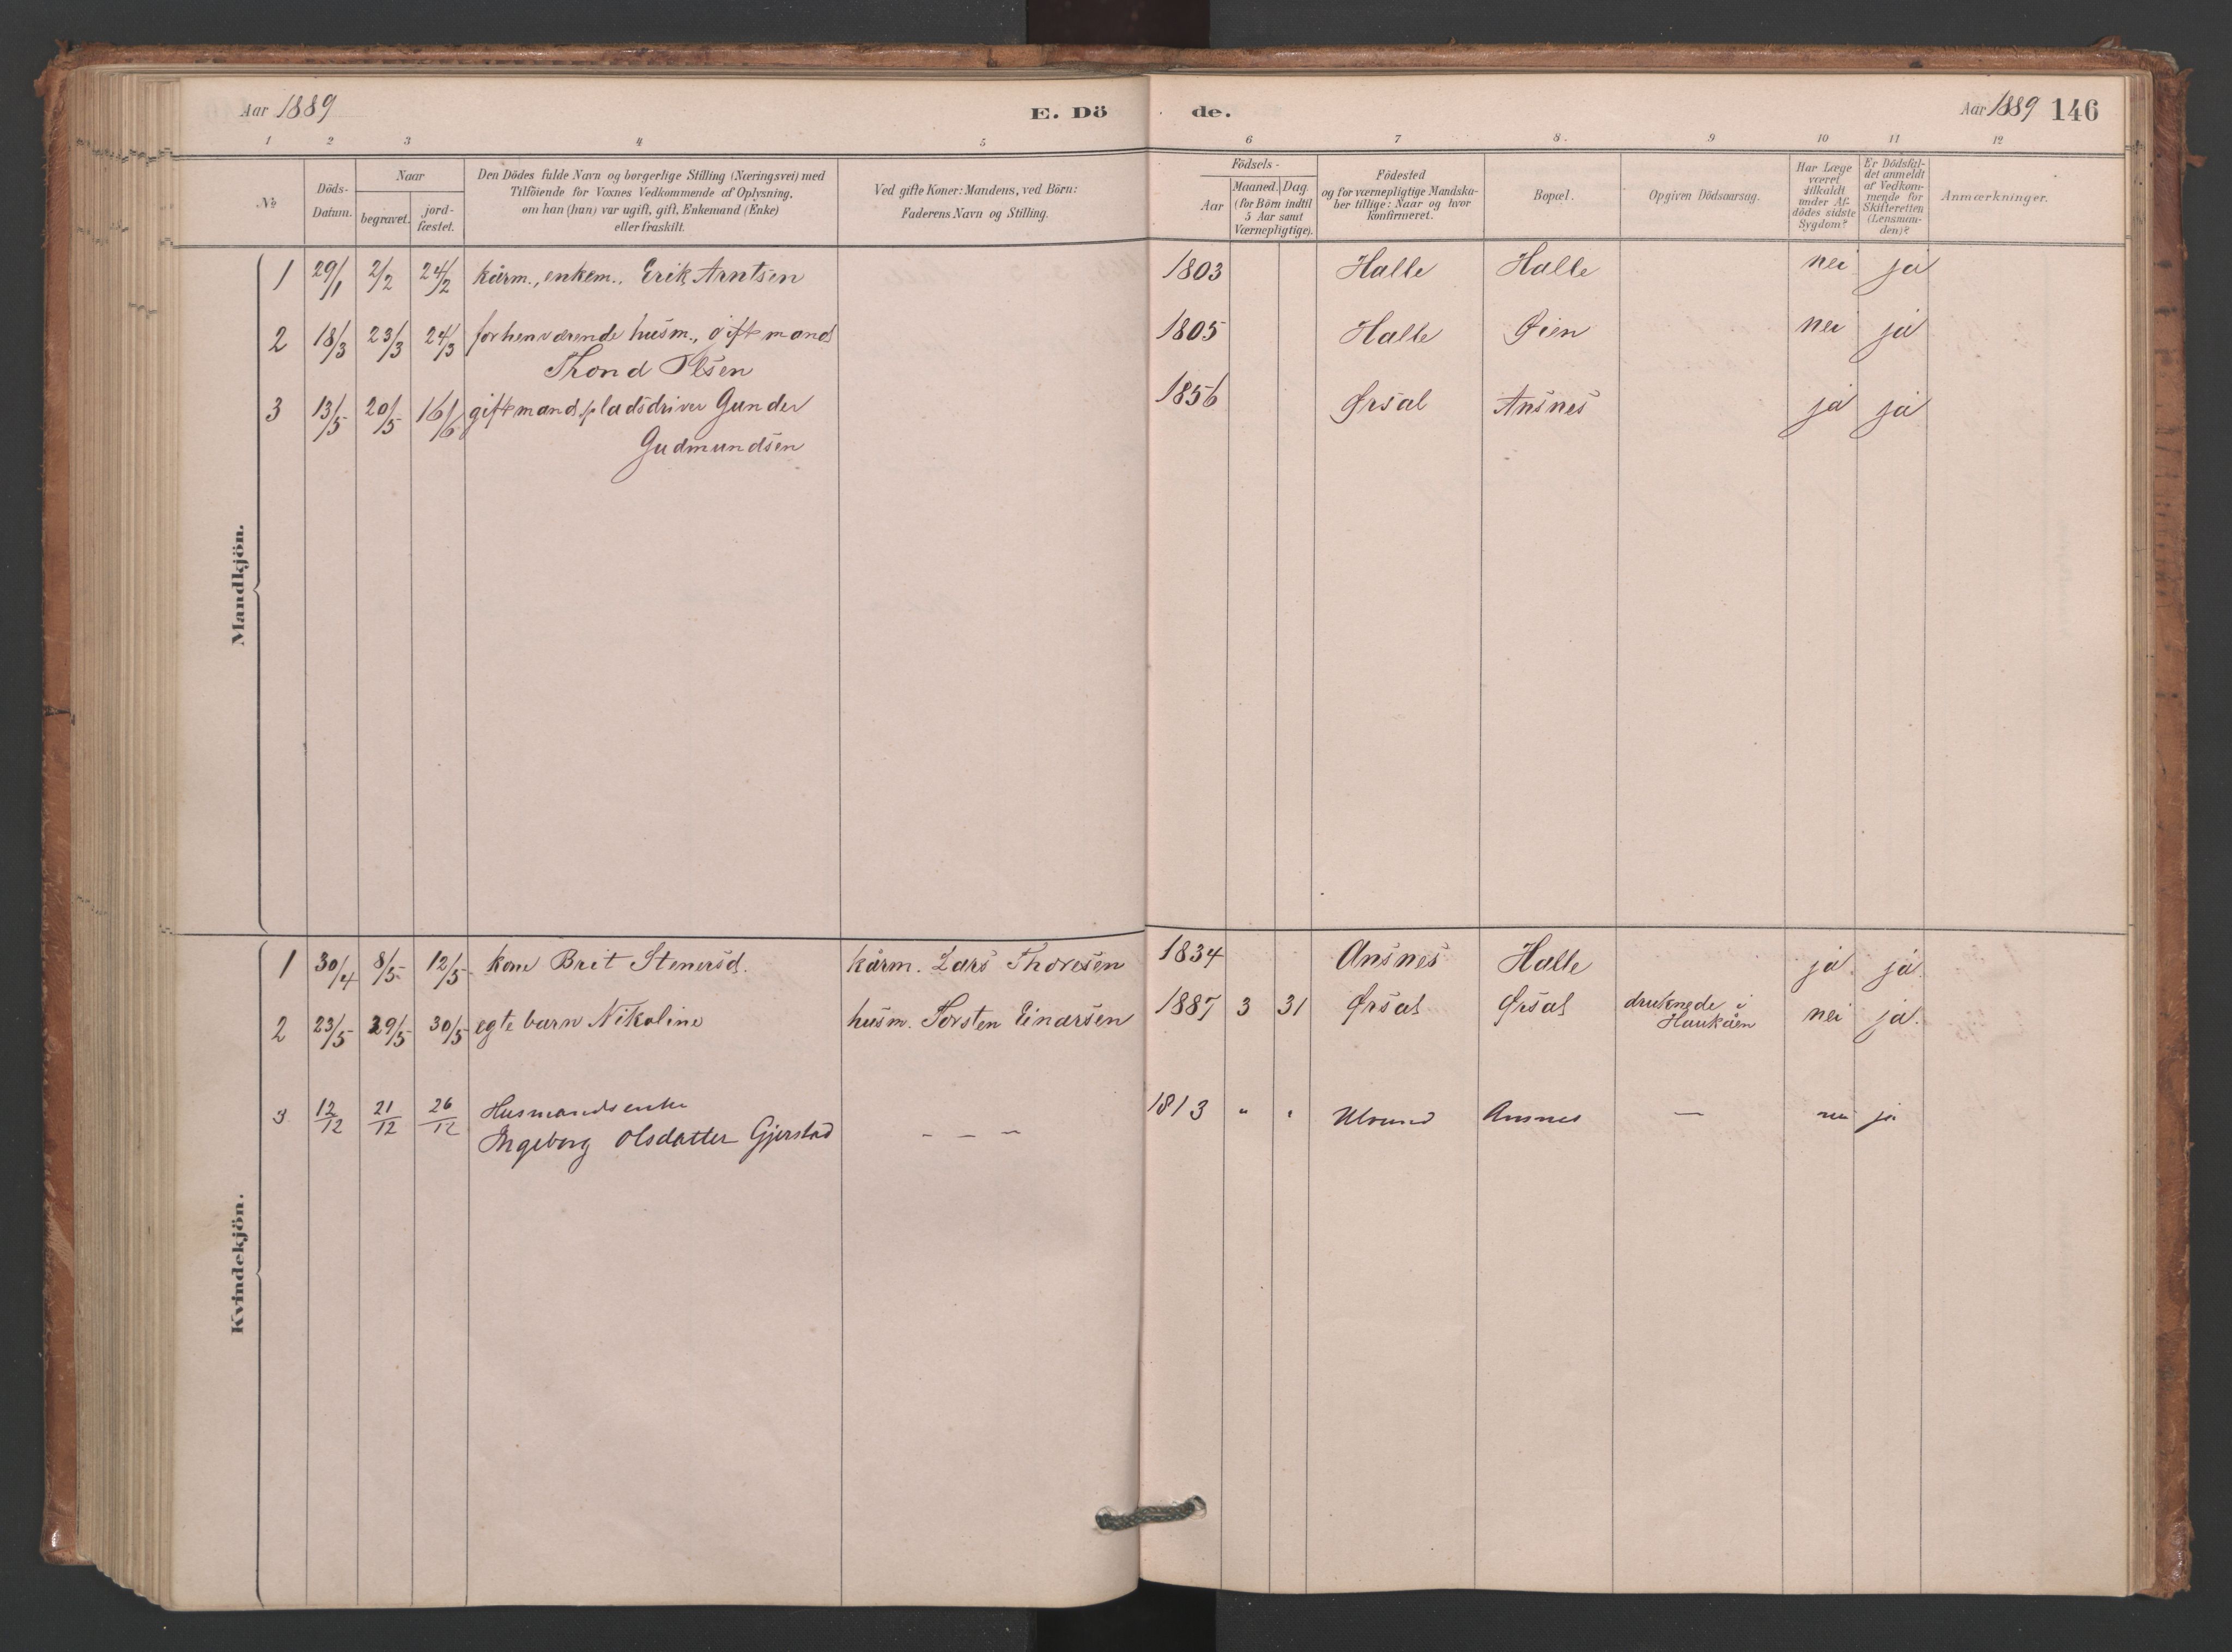 Aar 1889
E. Dö
de.
Aar 1889 146
1 2 3 4 5 6 7 8. 9 10 11 12
№
Döds-
Datum.
Naar
begravet.
jord-
fæstet.
Den Dödes fulde Navn og borgerlige Stilling (Næringsvei) med
Tilföiende for Voxnes Vedkommende af Oplysning,
om han (hun) var ugift, gift, Enkemand (Enke)
eller fraskilt.
Ved gifte Koner: Mandens, ved Börn:
Faderens Navn og Stilling.
Födsels-
Aar
Maaned. Dag.
(for Börn indtil
5 Aar samt
Værnepligtige).
Födested
og for værnepligtige Mandska-
ber tillige: Naar og hvor
konfirmeret.
Bopæl.
Opgiven Dödsaarsag.
Har Læge
været
tilkaldt
under Af-
dödes sidste
Sygdom?
Er Dödsfal-
det anmeldt
af Vedkom-
mende for
Skifteretten
(Lensman-
den)?
Anmærkninger.
Mandkjön.
1 29/1 2/2 24/2 kårm., enkem., Erik Arntsen 1803 Halle Halle nei ja
2 18/3 23/3 24/3 forhenværende husm., gift mand 1805 Halle Øien nei ja
Thond Olsen
3 13/5 20/5 16/6 gift mand pladsdriver Gunder 1856 Ørsal Ansnes ja ja
Gudmundsen
Kvindekjön.
1 30/4 8/5 12/5 kone Brit Stenersd. kårm. Lars Thoresen 1834 Ansnes Halle ja ja
2 23/5 29/5 30/5 egte barn Nikoline husm. Torsten Einarsen 1887 3 31 Ørsal Ørsal druknede i nei ja.
Haukåen
3 12/12 21/12 26/12 Husmandsenke 1813 " " Ulvund Ansnes — nei ja
Ingeborg Olsdatter Gjerstad – – –